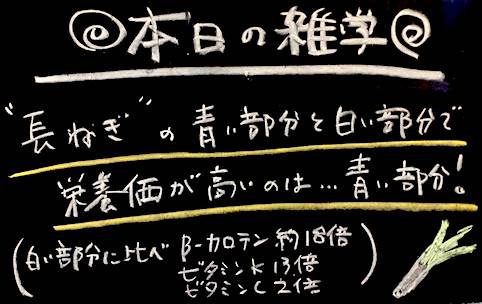 本日の雑学
"長ねぎ"の青い部分と白い部分で
栄養価が高いのは…青い部分!
(白い部分に比べ β-カロテン 約18倍
ビタミンK 13倍
ビタミンC 2倍)